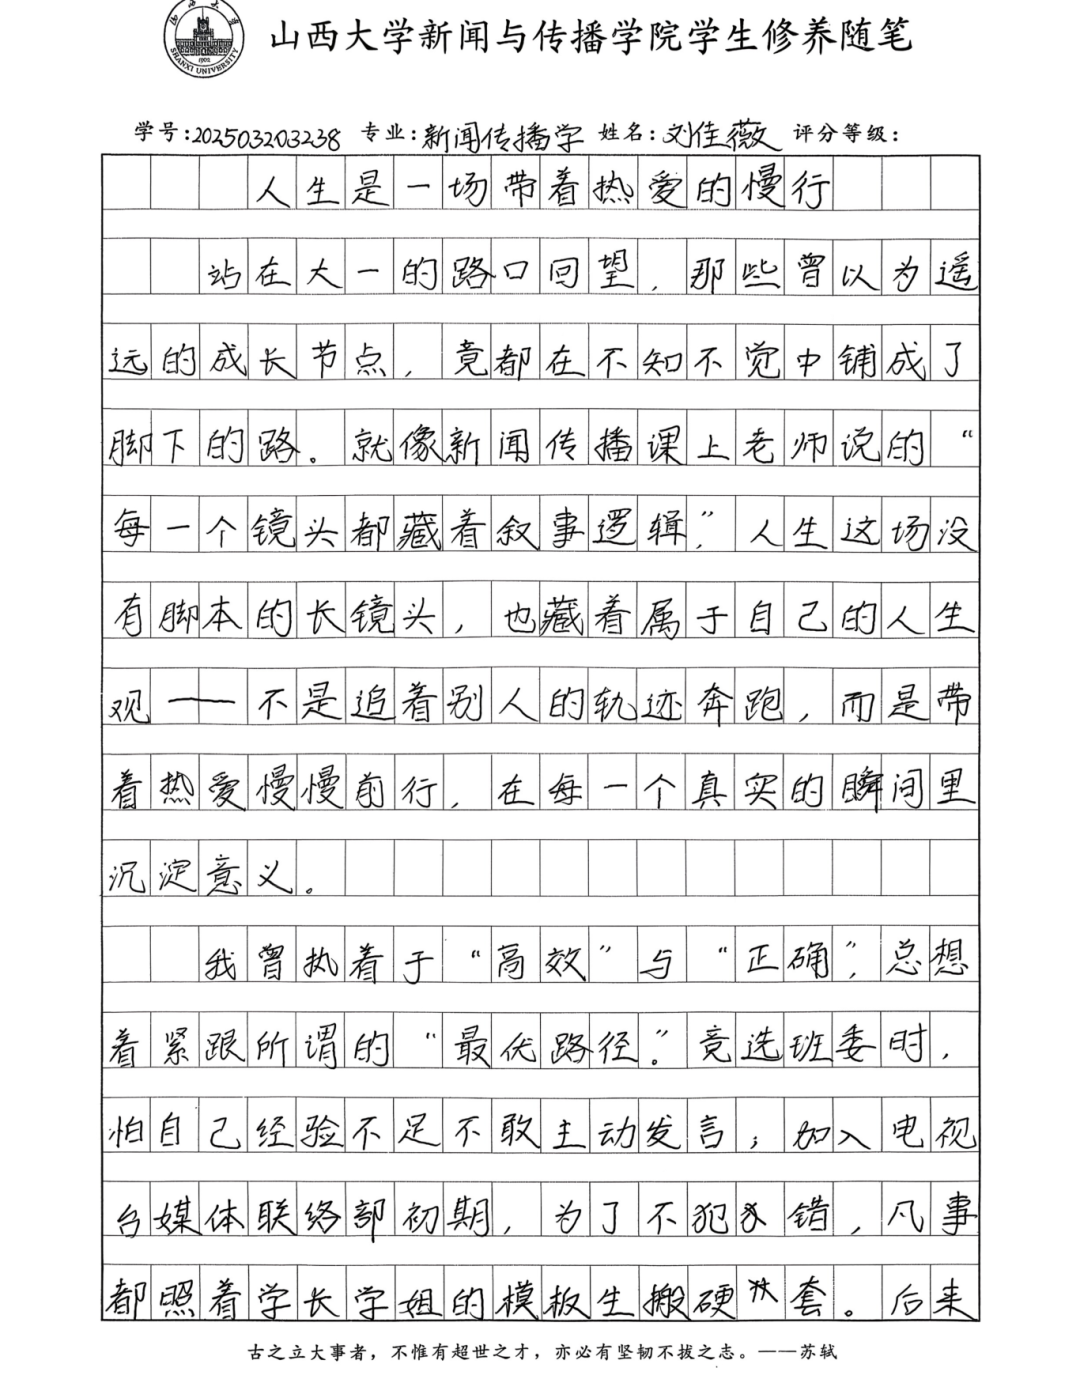 山西大学
SHANXI UNIVERSITY
1902
山西大学新闻与传播学院学生修养随笔
学号:202503203238 专业:新闻传播学 姓名:刘佳薇 评分等级:
人生是一场带着热爱的慢行
站在大一的路口回望，那些曾以为遥
远的成长节点，竟都在不知不觉中铺成了
脚下的路。就像新闻传播课上老师说的“
每一个镜头都藏着叙事逻辑”，人生这场没
有脚本的长镜头，也藏着属于自己的人生
观——不是追着别人的轨迹奔跑，而是带
着热爱慢慢前行，在每一个真实的瞬间里
沉淀意义。
我曾执着于“高效”与“正确”，总想
着紧跟所谓的“最优路径”。竞选班委时，
怕自己经验不足不敢主动发言；加入电视
台媒体联络部初期，为了不犯错，凡事
都照着学长学姐的模板生搬硬套。后来
古之立大事者，不惟有超世之才，亦必有坚韧不拔之志。——苏轼